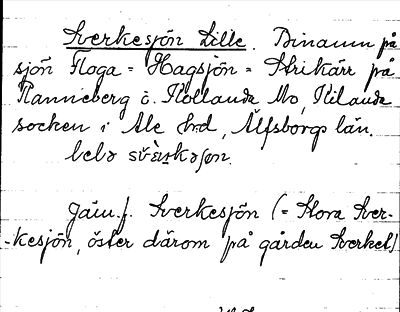 Sverkesjön Lille. Binamn på
sjön Floga = Hagsjön = Strikärr på
Ranneberg i Kollanda Mo, Kilanda
socken i Ale hrd, Älfsborgs län.
Jämf. Sverkesjön (= Stora Sver-
-kesjön, öster därom på gården Sverkel)